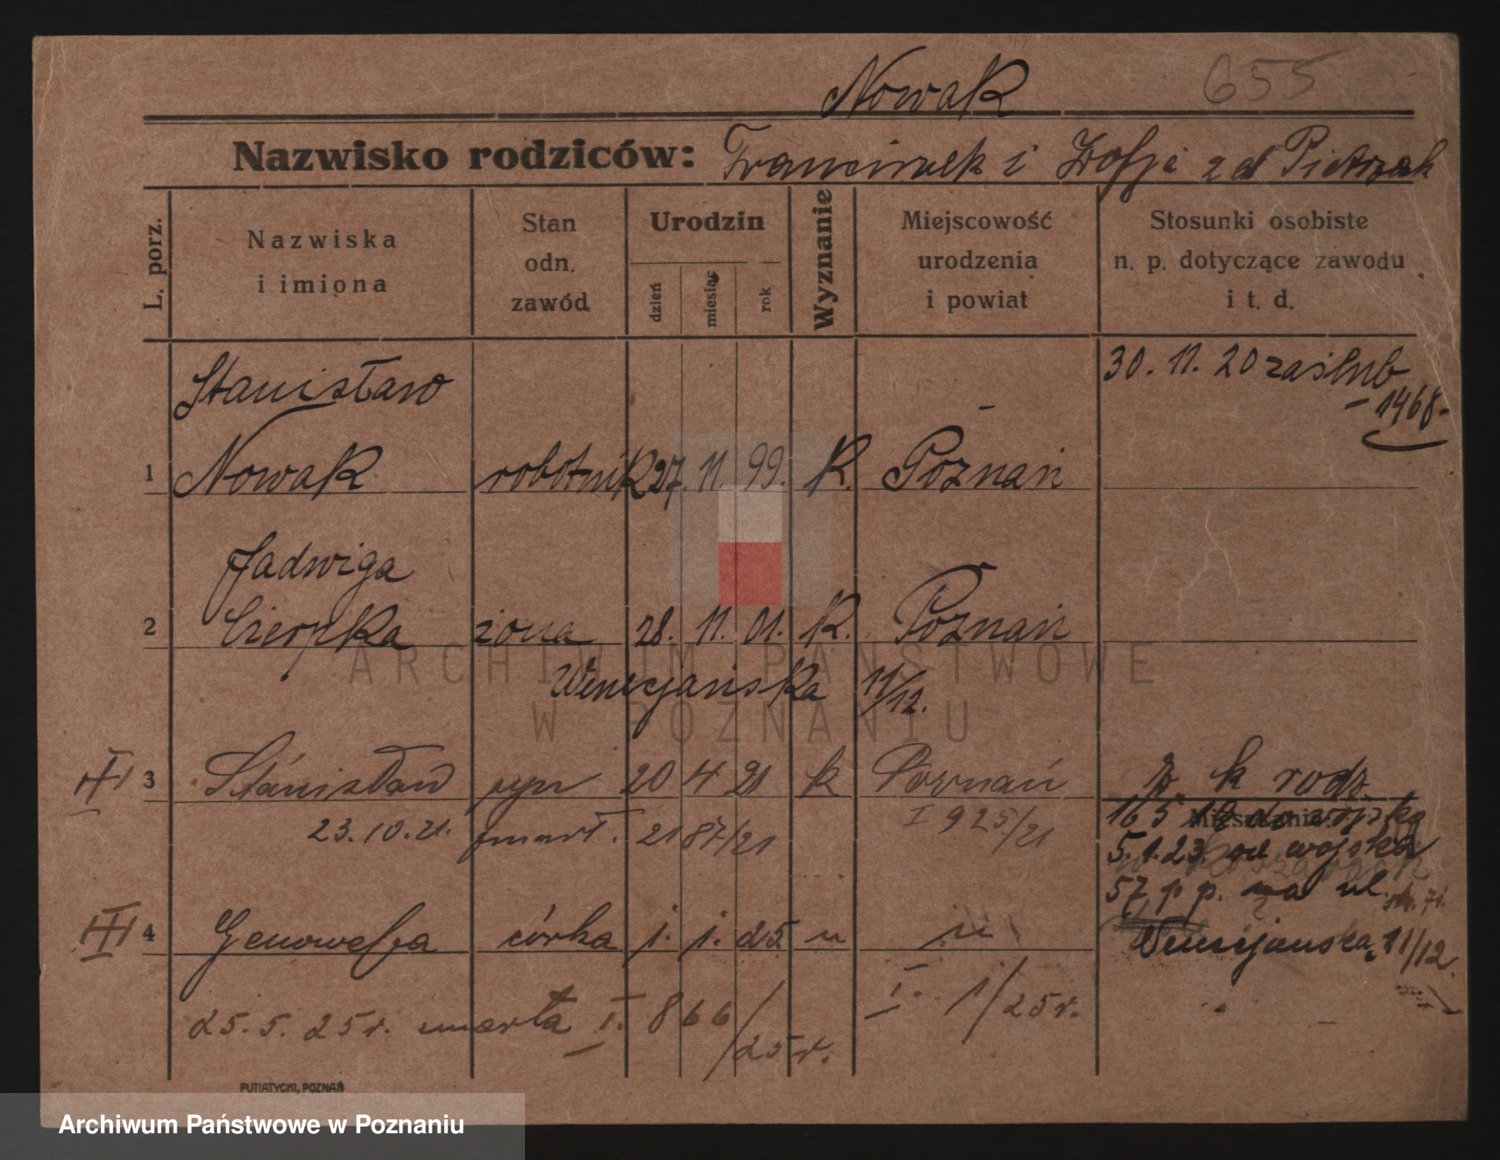 Nowak 655
Nazwisko rodziców: Franciszek i Zofje z d Pietrzak
L. porz.
Nazwiska i imiona
Stan odn. zawód
Urodzin
dzień miesiąc rok
Wyznanie
Miejscowość urodzenia i powiat
Stosunki osobiste n. p. dotyczące zawodu i t. d.
Stanisław 30. 11. 20 zaślub
1468-
1 Nowak robotnik 27. 11. 99. K. Poznań
Jadwiga
2 Cierpka żona 28. 11. 01. K. Poznań
Wenecjańska 11/12.
III 3 Stanisław syn 20 4 21 k Poznań k rodz.
23.10.21. zmarł. 2187/21 I 925/21
165 do wojska
5.1.23. od wojska
57 p p. na ul.
III 4 Genowefa córka 1. 1. 25. " "
Wenecjańska 11/12
25. 5. 25r. umarła I. 866/25r. I. 1/25r.
PUTIATYCKI, POZNAŃ
ARCHIWUM PAŃSTWOWE
W POZNANIU
Archiwum Państwowe w Poznaniu